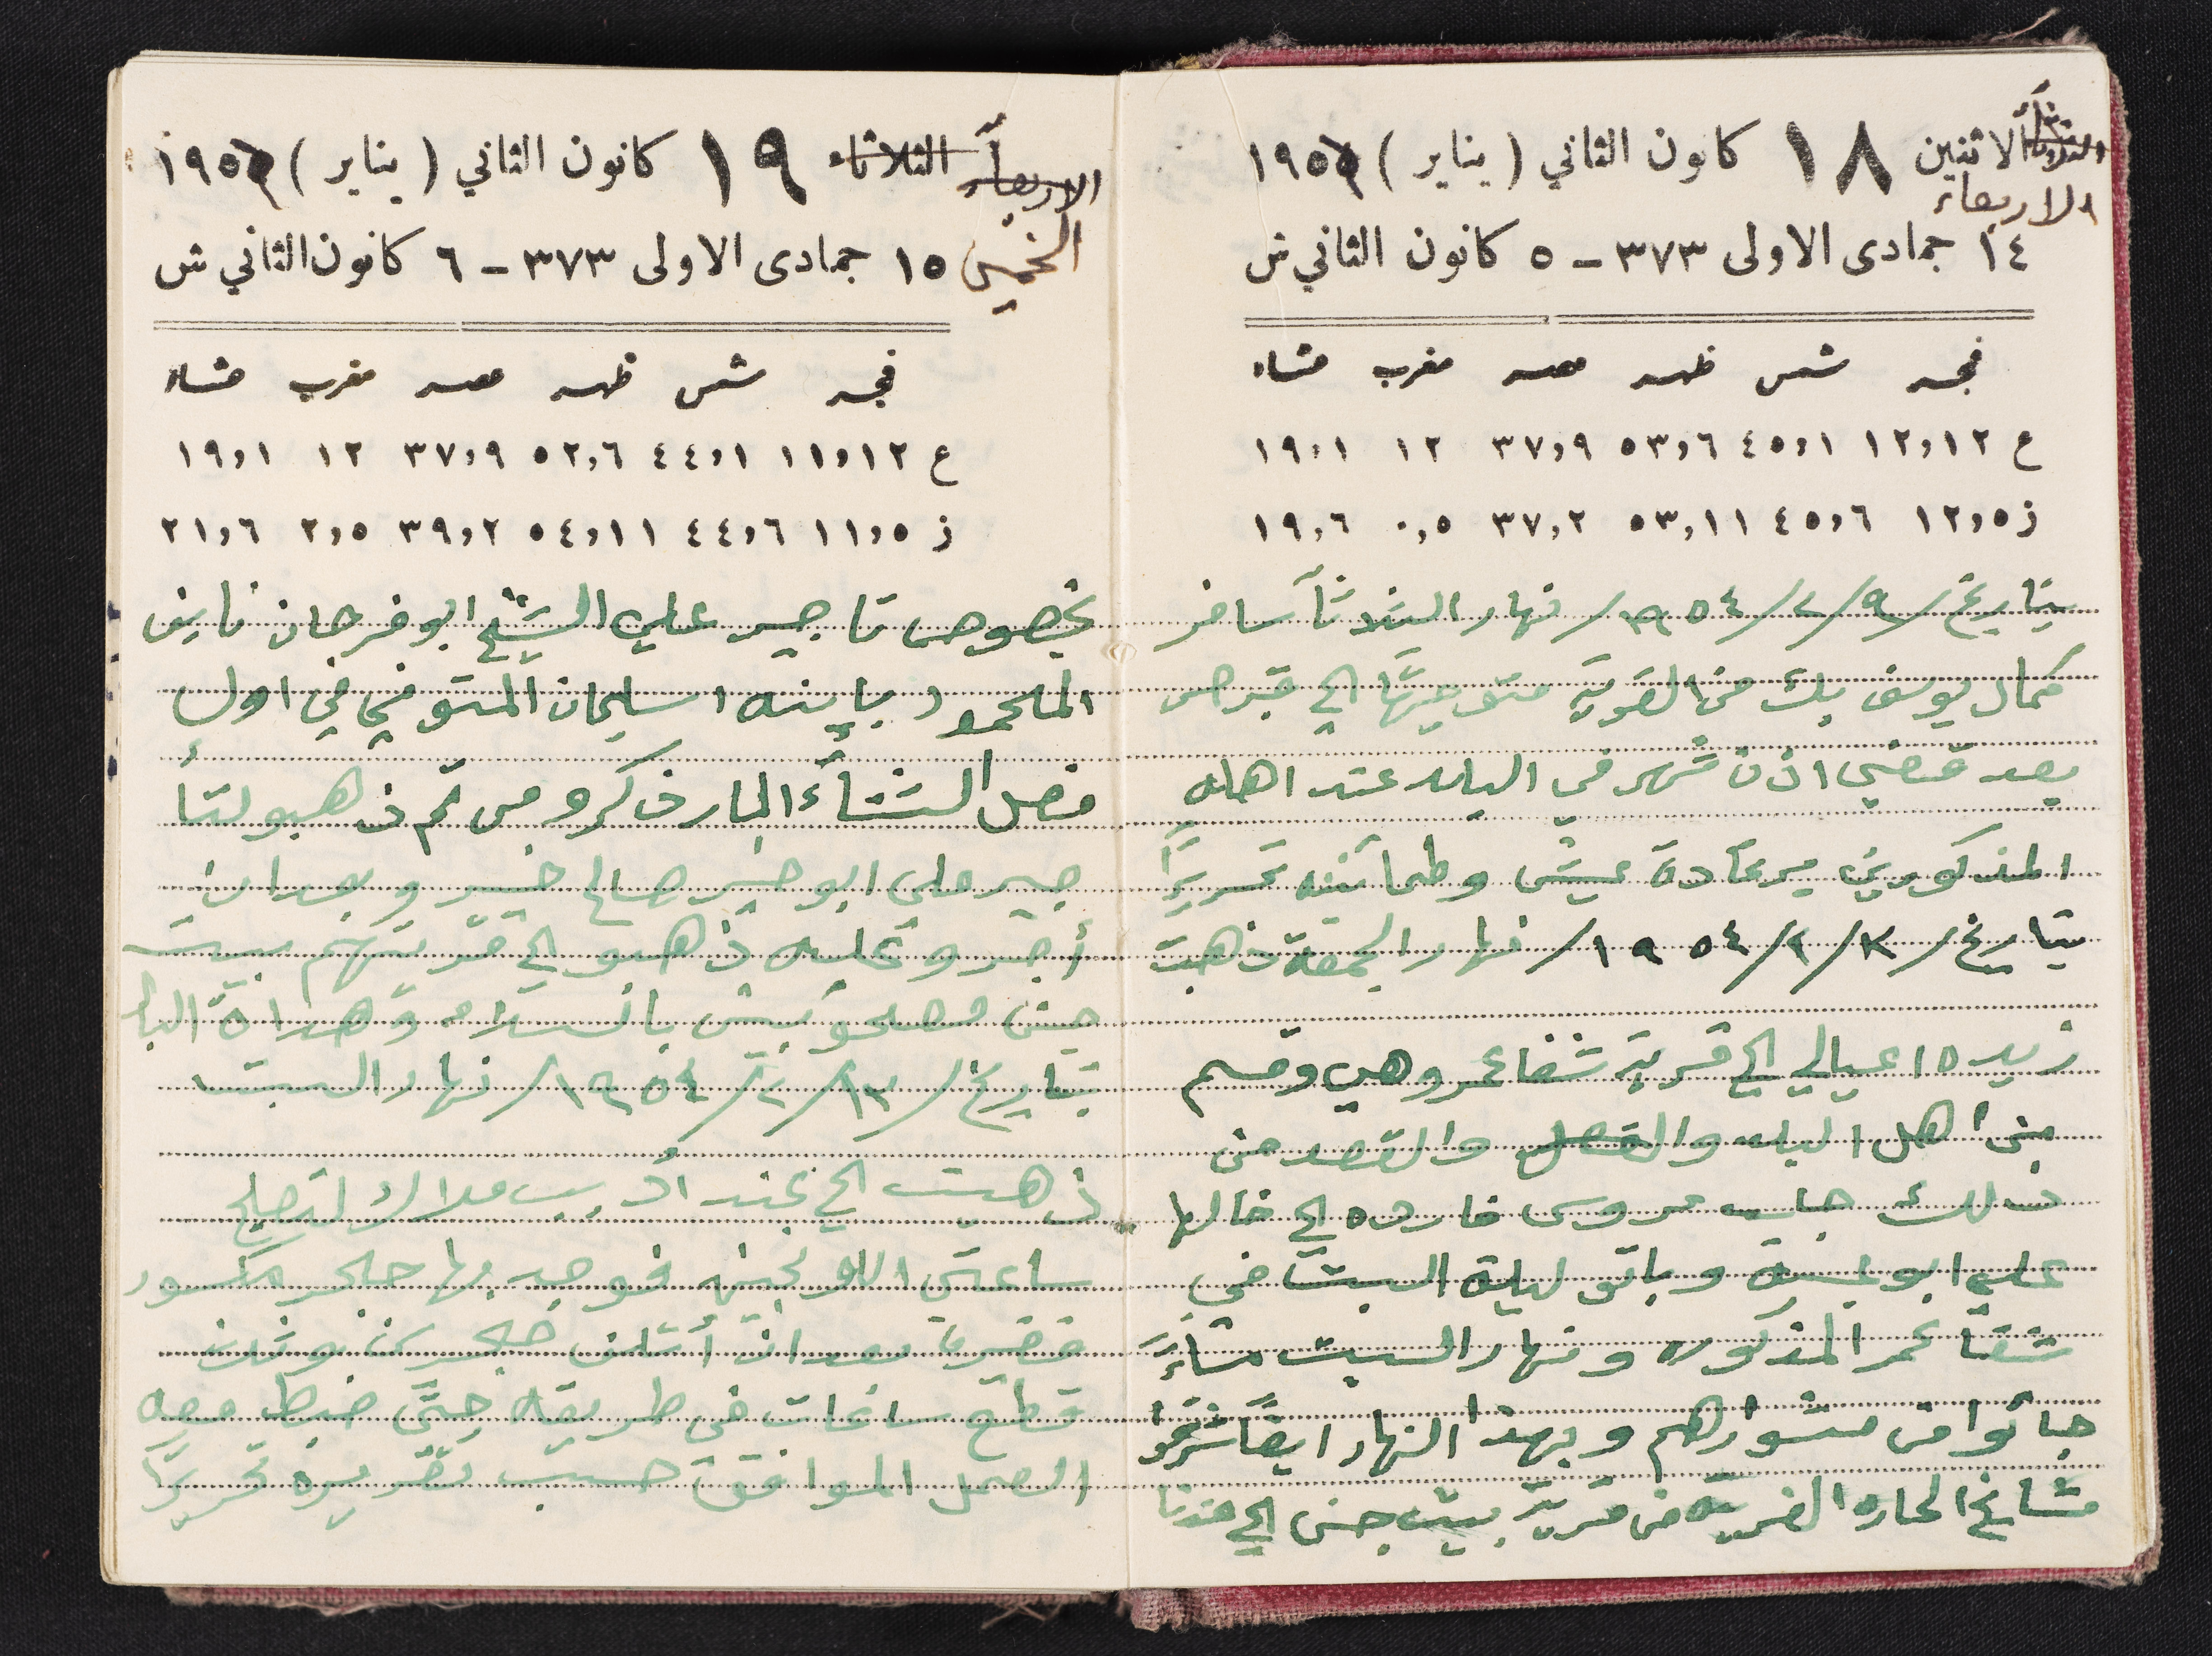 الثلاثاء الاثنين ١٨ كانون الثاني ( يناير ) ١٩٥٥
والاربعاء
١٤ جمادى الاولى ٣٧٣ - ٥ كانون الثاني ش
فجر شمس ظهر عصر مغرب عشاء
ع ١٢,١٢ ٤٥,١ ٥٣,٦ ٣٧,٩ ١٢ ١٩,١
ز ١٢,٥ ٤٥,٦ ٥٣,١١ ٣٧,٢ ٠,٥ ١٩,٦
بتاريخ /٩/٢/١٩٥٤/ نهار الثلاثآ سافر
كمال يوسف بك من القرية متوجهًا الى قبرص
بعد قضي شهر في البلد عند اهله
المذكورين عيش وطمأنينه تحريرًا
بتاريخ / ١٩٥٤/ نهار الجمعة ذهبت
زيده عيالي الى قرية شفاعمر وهي وقسم
من اهل البلد والقصد من
ذلك جياب عروس فارده الى خالها
علي ابو عسله وباتو ليلة السبت في
شفاعمر المذكوره ونهار السبت مسأً
جائوا من مشوارهم وبهذا النهار ايضًا شرفوا
مشايخ الحاره الغربيه من قرية بيت جن الى عندنا
الاربعآ الثلاثاء ١٩ كانون الثاني ( يناير ) ١٩٥٥
الخميس
١٥ جمادى الاولى ٣٧٣ - ٦ كانون الثاني ش
فجر شمس ظهر عصر مغرب عشاء
ع ١١,١٢ ٤٤,١ ٥٢,٦ ٣٧,٩ ١٢ ١٩,١
ز ١١,٥ ٤٤,٦ ٥٤,١١ ٣٩,٢ ٢,٥ ٢١,٦
بخصوص تاجير علي الشيخ ابو فرحان نايف
الملحمود بابنه سليمان المتوفي في اول
فصل الشتاء المار ذكره ومن ثم ذهبو لتأ
جير علي ابو خير صالح خير وبعد ان
أجرو عليه ذهبو الى قريتهم بيت
جن بالسلامه
بتاريخ /١٣/٢/١٩٥٤/ نهار السبت
ذهبت الى عند أديب ملاك لتصليح
ساعتي فوجد بها حجر مكسور
بعد ان أتلف حجرين وثلث
قطع ساعات في طريقه حتى ضبط معه
العمل الموافق حسب تقديره تحريرًا